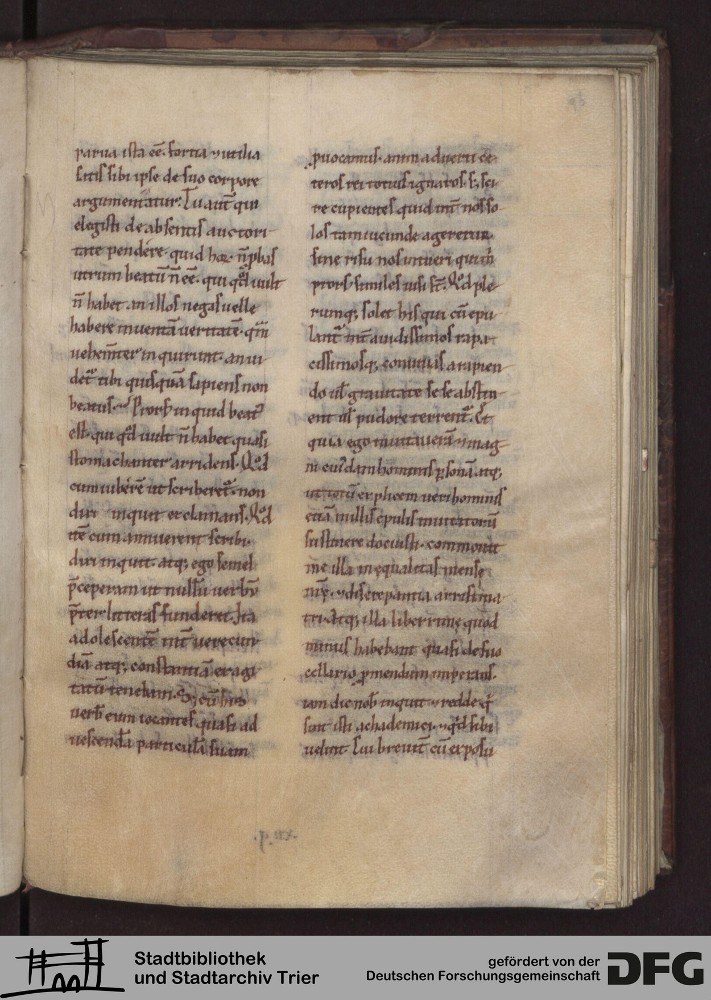 parua ista eē· fortia ⁊ utilia
satis sibi ipse de suo corpore
argumentatur· Tu aut̄ qui
elegisti de absentis auctori
tate pendere· quid hoc n̄ pbas
utrum beatū n̄ eē· qui qd uult
n̄ habet· an illos negas uelle
habere inuentā ueritatē· qm̄
uehem̄ter inquirunt· an ui
det̄ tibi quisquā sapiens non
beatus· Prorsus inquid beat᷒
est· qui qd uult n̄ habet quasi
stomachanter arridens· Qd
cum iuberē ut scriberet̄· non
dixi inquit exclamans· Qd
itē cum annuerem scribi·
dixi inquit· atq; ego semel
p̄ceperam ut nullū uerbū
p̄ter litteras funderet· Ita
adolescentē int̄ uerecun
diā atq; constantiā exagi
tatū tenebam· Sꝫ cū his
uerb eum iocantes quasi ad
uescendā particulā suam
puocamus· animaduerti ce
teros rei totius ignaros· ⁊ sci
re cupientes quid int̄ nos so
los tam iucunde ageretur
sine risu nos intueri qui m̄
prors᷒ similes uisi st̄· Qd ple
rumq; solet his qui cū epu
lant̄ int̄ auidissimos rapa
cissimosq; conuiuas a rapien
do ut̄ grauitate sese abstin
ent ut̄ pudore terrent̄· Et
quia ego inuitauerā ⁊ mag
ni cui᷒dam hominis psonā atq;
ut totū explicem ueri hominis
etiā in illis epulis inuitatorū
sustinere docuisti· commouit
me illa inęqualitas mensę
nr̄ę· ⁊ discrepantia· arrisi ma
tri· Atq; illa liberrime quod
minus habebant quasi de suo
cellario pmendum imperans·
iam dic nob inquit ⁊ redde q
sunt isti achademici· ⁊ qd sibi
uelint· Cui breuit̄ cū exposu
XII q.
93
Stadtbibliothek
und Stadtarchiv Trier
gefördert von der
Deutschen Forschungsgemeinschaft
DFG